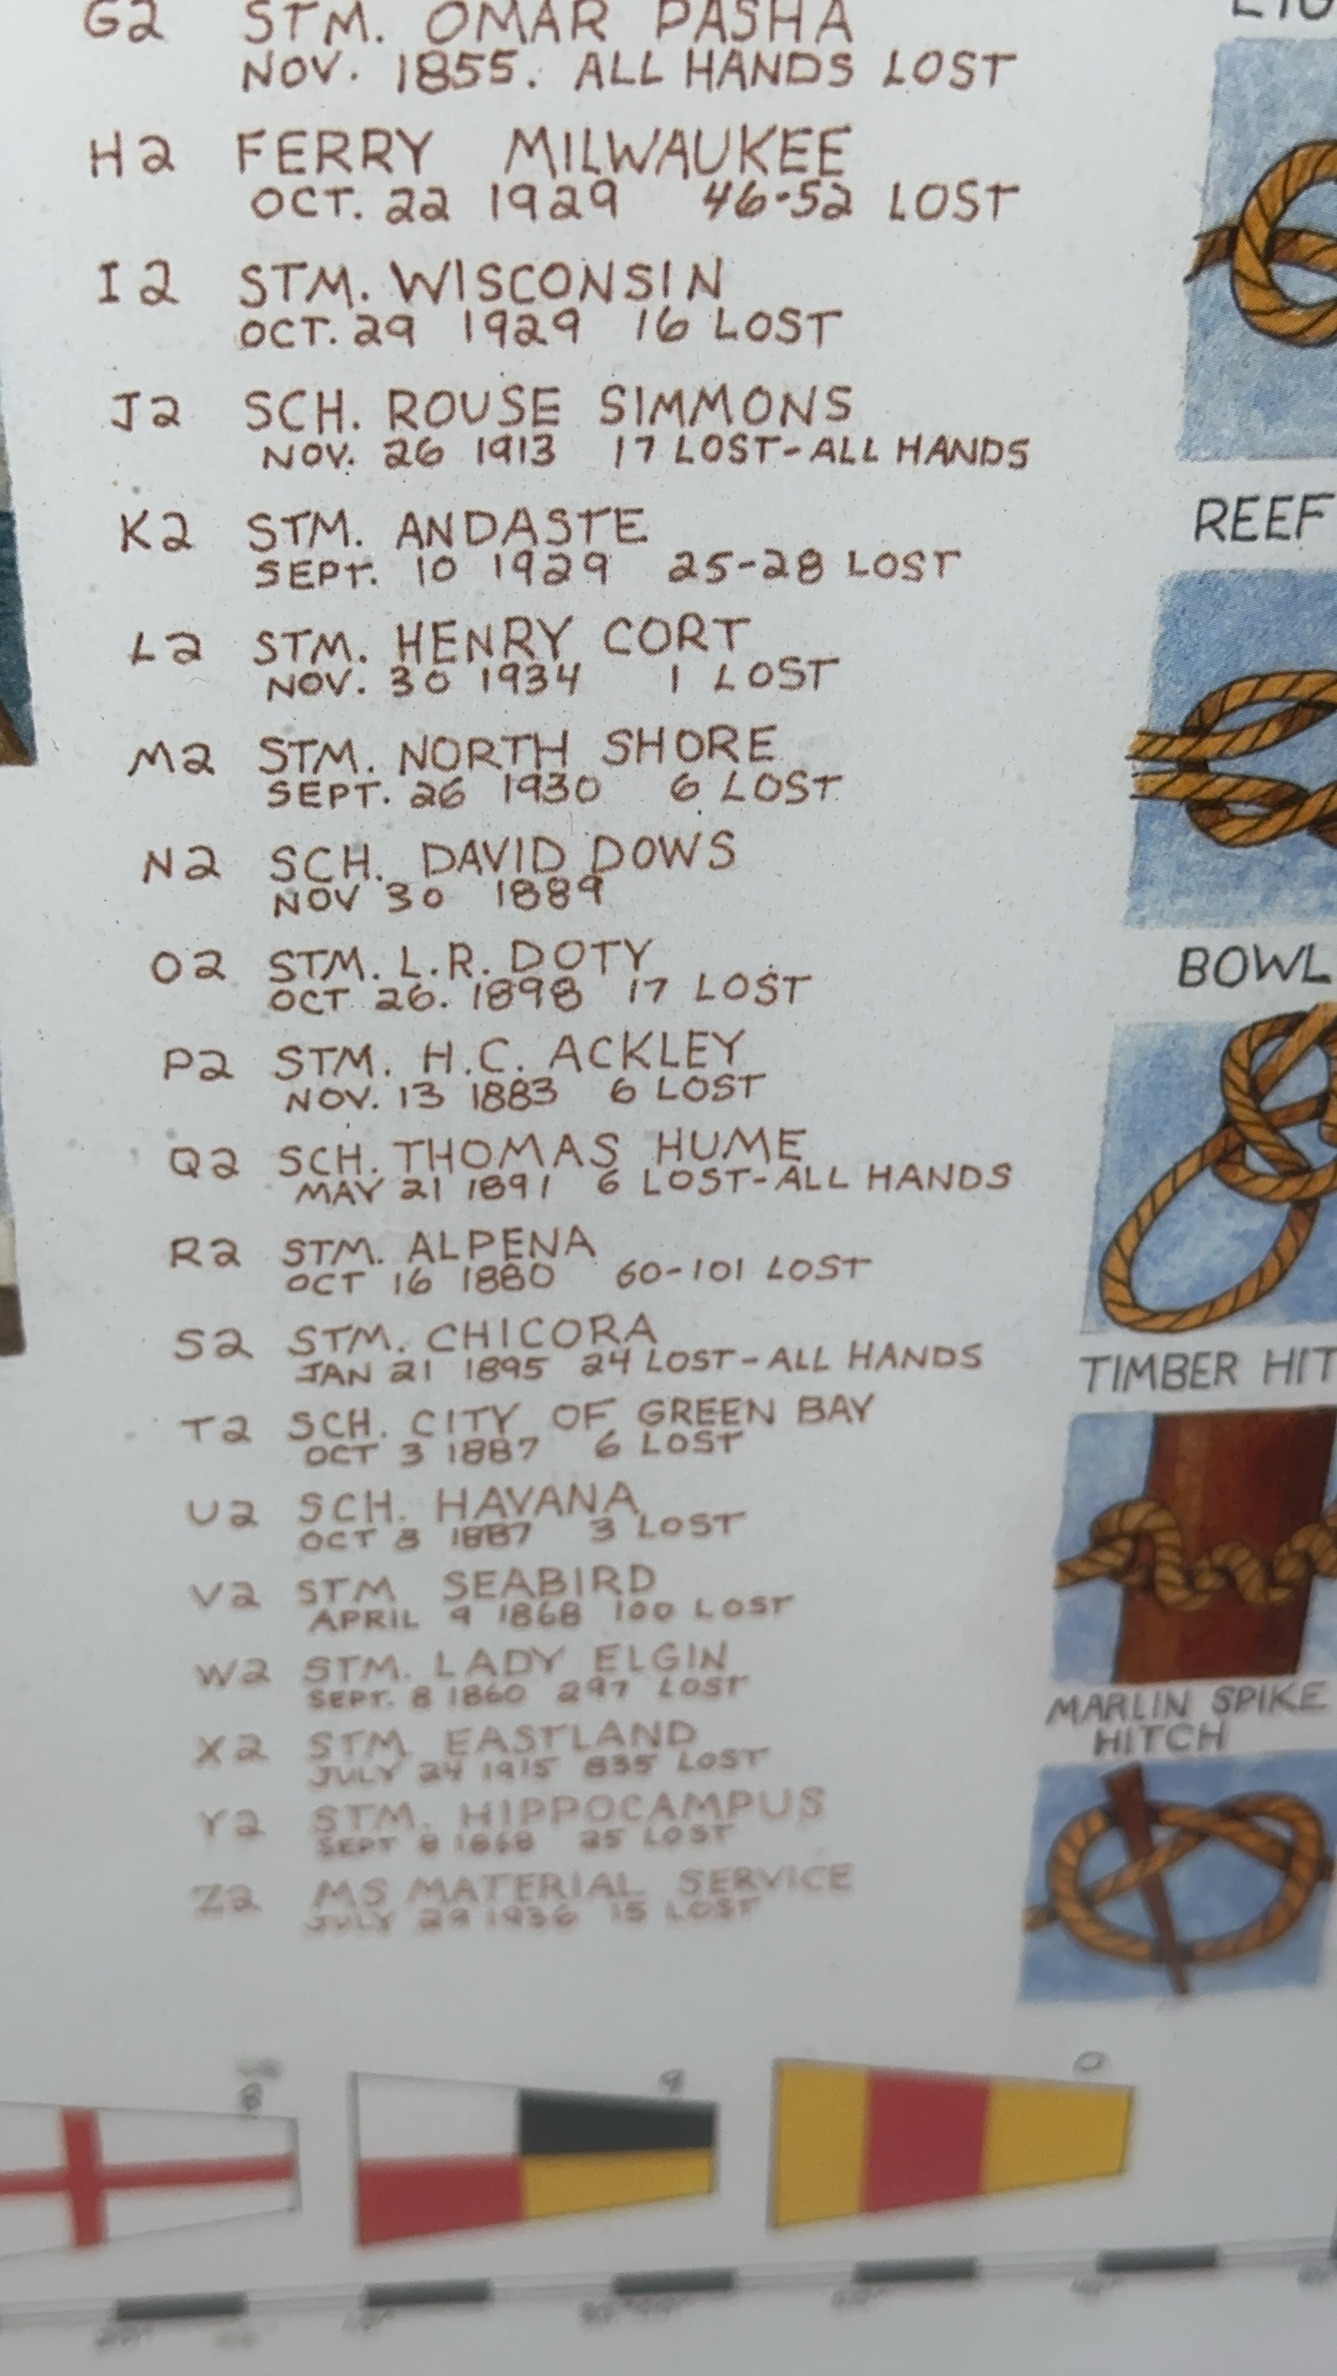 G2 STM. OMAR PASHA
NOV. 1855. ALL HANDS LOST
H2 FERRY MILWAUKEE
OCT. 22 1929 46-52 LOST
I2 STM. WISCONSIN
OCT. 29 1929 16 LOST
J2 SCH. ROUSE SIMMONS
NOV. 26 1913 17 LOST-ALL HANDS
K2 STM. ANDASTE
SEPT. 10 1929 25-28 LOST
L2 STM. HENRY CORT
NOV. 30 1934 1 LOST
M2 STM. NORTH SHORE
SEPT. 26 1930 6 LOST
N2 SCH. DAVID DOWS
NOV 30 1889
O2 STM. L.R. DOTY
OCT 26. 1898 17 LOST
P2 STM. H.C. ACKLEY
NOV. 13 1883 6 LOST
Q2 SCH. THOMAS HUME
MAY 21 1891 6 LOST-ALL HANDS
R2 STM. ALPENA
OCT 16 1880 60-101 LOST
S2 STM. CHICORA
JAN 21 1895 24 LOST-ALL HANDS
T2 SCH. CITY OF GREEN BAY
OCT 3 1887 6 LOST
U2 SCH. HAVANA
OCT 3 1887 3 LOST
V2 STM SEABIRD
APRIL 9 1868 100 LOST
W2 STM. LADY ELGIN
SEPT. 8 1860 297 LOST
X2 STM. EASTLAND
JULY 24 1915 835 LOST
Y2 STM. HIPPOCAMPUS
SEPT 8 1868 25 LOST
Z2 MS MATERIAL SERVICE
JULY 29 1936 15 LOST
REEF
BOWL
TIMBER HIT
MARLIN SPIKE
HITCH
8
9
0